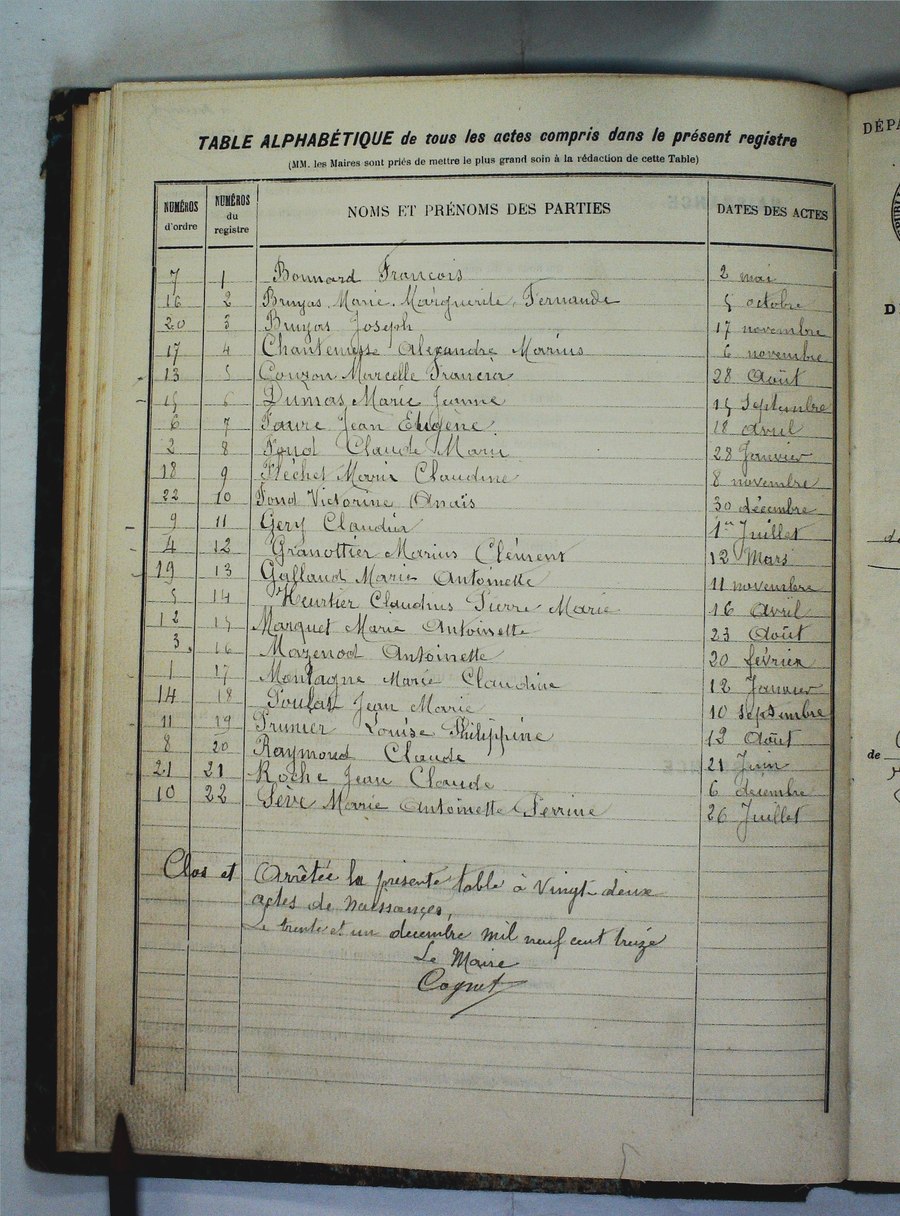 TABLE ALPHABÉTIQUE de tous les actes compris dans le présent registre
(MM. les Maires sont priés de mettre le plus grand soin à la rédaction de cette Table)
NUMÉROS d'ordre NUMÉROS du registre NOMS ET PRÉNOMS DES PARTIES DATES DES ACTES
7 1 Bonnard François 2 mai
16 2 Bruyas Marie Marguerite Fernande 5 octobre
20 3 Bruyas Joseph 17 novembre
17 4 Chantemesse Alexandre Marius 6 novembre
13 5 Couzon Marcelle Francia 28 Août
15 6 Dumas Marie Jeanne 15 Septembre
6 7 Faure Jean Eugène 18 avril
2 8 Fond Claude Marie 28 Janvier
18 9 Fléchet Marie Claudine 8 novembre
22 10 Fond Victorine Anaïs 30 décembre
9 11 Gery Claudia 1er Juillet
4 12 Granottier Marius Clément 12 Mars
19 13 Gallaud Marie Antoinette 11 novembre
5 14 Heurtier Claudius Pierre Marie 16 Avril
12 15 Marquet Marie Antoinette 23 Août
3 16 Mazenod Antoinette 20 février
1 17 Montagne Marie Claudine 12 Janvier
14 18 Poulat Jean Marie 10 septembre
11 19 Prunier Louise Philippine 12 Août
8 20 Raymond Claude 21 Juin
21 21 Roche Jean Claude 6 décembre
10 22 Sève Marie Antoinette Perrine 26 Juillet
Clos et Arrêtée la présente table à Vingt deux
actes de Naissances,
Le trente et un décembre mil neuf cent treize
Le Maire
Cognet
DÉPA
D
de